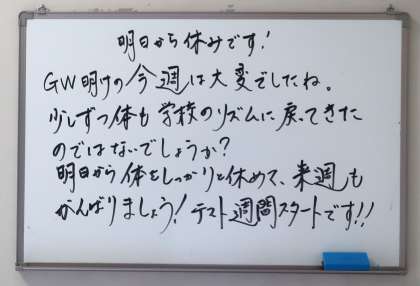 明日から休みです!
GW明けの今週は大変でしたね。
少しずつ体も学校のリズムに戻ってきた
のではないでしょうか?
明日から体をしっかりと休めて、来週も
がんばりましょう! テスト週間スタートです!!